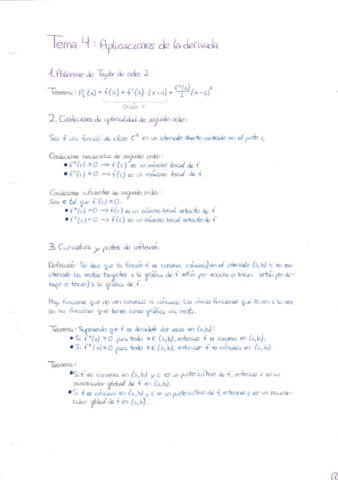 Tema 4: Aplicaciones de la derivada
1. Polinomio de Taylor de orden 2
Teorema: P₂(x) = f(a) + f'(a)·(x-a) + f''(a)/2 (x-a)²
Orden 1
2. Condiciones de optimalidad de segundo orden
Sea f una función de clase C² en un intervalo abierto centrado en el punto c,
Condiciones necesarias de segundo orden:
• f''(c) ≥ 0 → f(c) es un mínimo local de f
• f''(c) ≤ 0 → f(c) es un máximo local de f
Condiciones suficientes de segundo orden:
Sea c tal que f'(c) = 0.
• f''(c) > 0 → f(c) es un mínimo local estricto de f
• f''(c) < 0 → f(c) es un máximo local estricto de f
3. Curvatura y puntos de inflexión
Definición: Se dice que la función f es convexa (cóncava) en el intervalo (a,b) si en ese
intervalo las rectas tangentes a la gráfica de f están por encima o tocan (están por de-
bajo o tocan) a la gráfica de f.
Hay funciones que no son convexas ni cóncavas. Las únicas funciones que lo son a la vez
son las funciones que tienen como gráfica una recta.
Teorema: Suponiendo que f es derivable dos veces en (a,b):
• Si f''(x) ≥ 0 para todo x ∈ (a,b), entonces f es convexa en (a,b).
• Si f''(x) ≤ 0 para todo x ∈ (a,b), entonces f es cóncava en (a,b).
Teorema:
• Si f es convexa en (a,b) y c es un punto crítico de f, entonces c es un
minimizador global de f en (a,b).
• Si f es cóncava en (a,b) y c es un punto crítico de f, entonces c es un maximi-
zador global de f en (a,b).